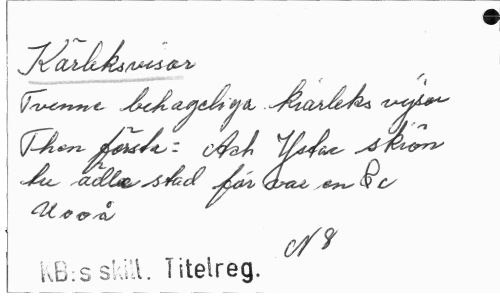 Kärleksvisor
Tvenne behageliga kiärleks vijsor
Then första: Ach Ystac skiön
tu ädla stad för var en &c
U o o å
N 8
KB:s skill. Titelreg.